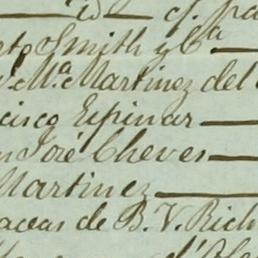 id — cf. pa
to Smith y Cª
Mª Martinez del
cisco Espinar
José Cheves
Martinez
aceas de B. V. Rich